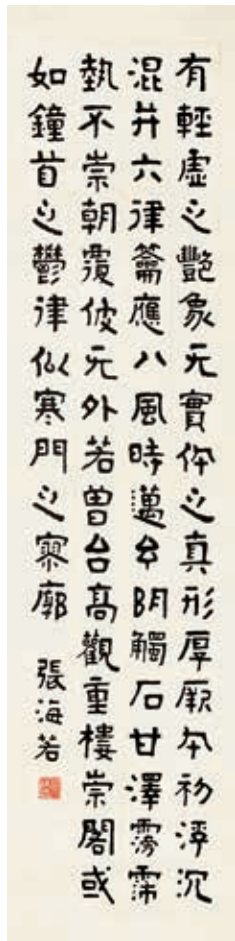 有輕虛之豔象无實体之真形厚厥夲初浮沉
混并六律籥應八風時邁玄阴觸石甘澤霶霈
執不崇朝覆彼无外若曾台高觀重樓崇閣或
如鐘首之鬱律似寒門之寥廓
張海若